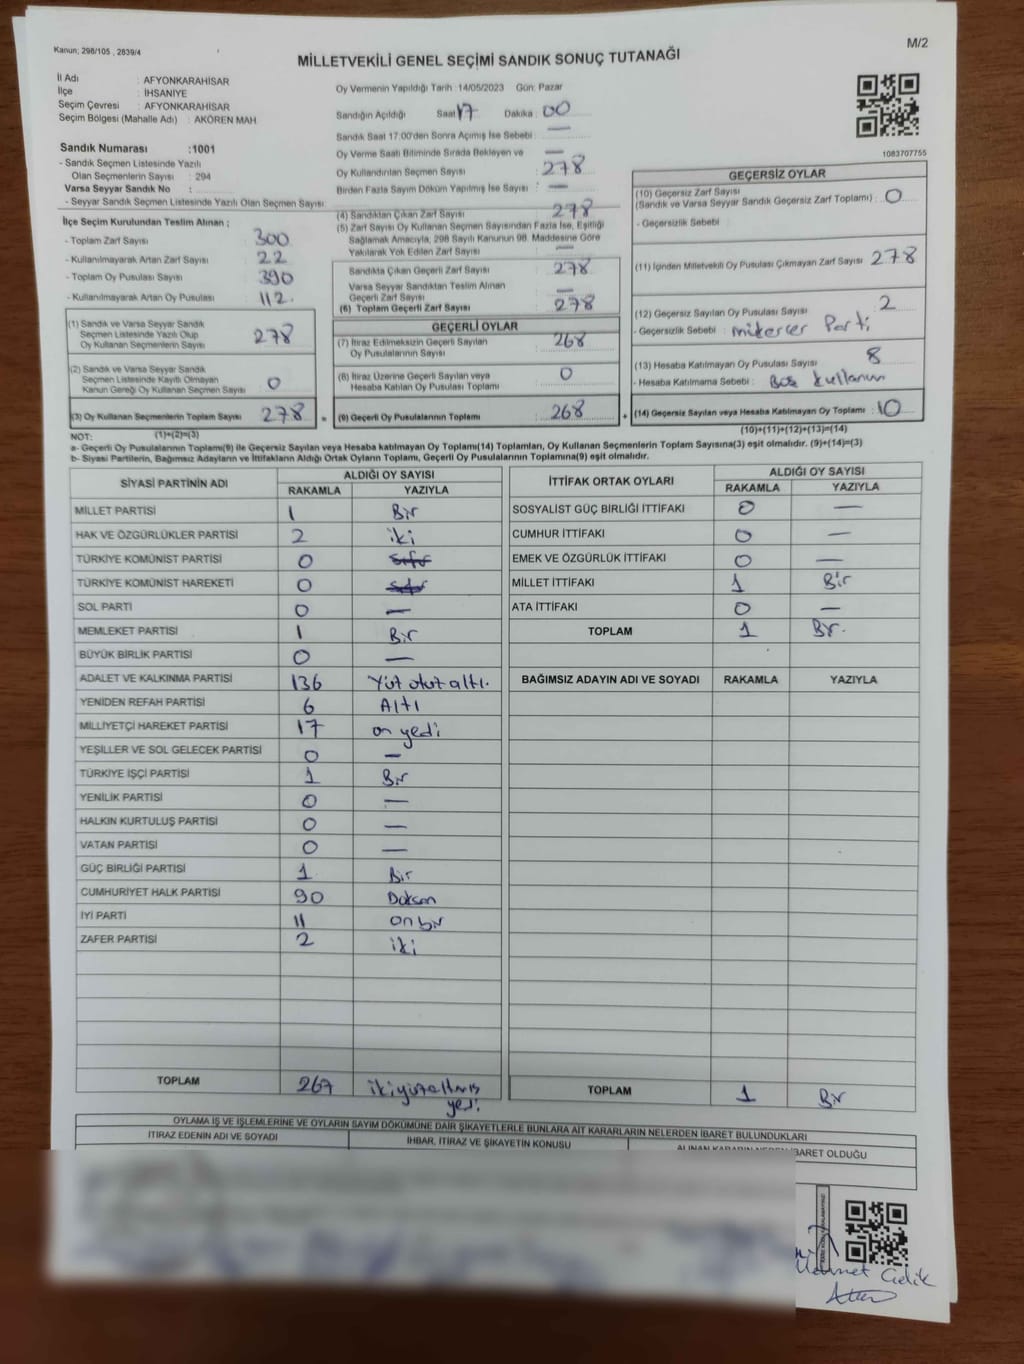 Kanun; 298/105 , 2839/4
M/2
MİLLETVEKİLİ GENEL SEÇİMİ SANDIK SONUÇ TUTANAĞI
İl Adı : AFYONKARAHİSAR
İlçe : İHSANİYE
Seçim Çevresi : AFYONKARAHİSAR
Seçim Bölgesi (Mahalle Adı) : AKÖREN MAH
Sandık Numarası :1001
- Sandık Seçmen Listesinde Yazılı
Olan Seçmenlerin Sayısı : 294
Varsa Seyyar Sandık No :
- Seyyar Sandık Seçmen Listesinde Yazılı Olan Seçmen Sayısı:
Oy Vermenin Yapıldığı Tarih 14/05/2023 Gün: Pazar
Sandığın Açıldığı Saat 17 Dakika : 00
Sandık Saat 17:00'den Sonra Açımış İse Sebebi : —
Oy Verme Saati Bitiminde Sırada Bekleyen ve —
Oy Kullandırılan Seçmen Sayısı : 278
Birden Fazla Sayım Döküm Yapılmış İse Sayısı : —
1083707755
İlçe Seçim Kurulundan Teslim Alınan ;
- Toplam Zarf Sayısı 300
- Kullanılmayarak Artan Zarf Sayısı 22
- Toplam Oy Pusulası Sayısı 390
- Kullanılmayarak Artan Oy Pusulası 112.
(1) Sandık ve Varsa Seyyar Sandık
Seçmen Listesinde Yazılı Olup
Oy Kullanan Seçmenlerin Sayısı 278
(2) Sandık ve Varsa Seyyar Sandık
Seçmen Listesinde Kayıtlı Olmayan
Kanun Gereği Oy Kullanan Seçmen Sayısı 0
(3) Oy Kullanan Seçmenlerin Toplam Sayısı 278 =
(4) Sandıktan Çıkan Zarf Sayısı : 278
(5) Zarf Sayısı Oy Kullanan Seçmen Sayısından Fazla İse, Eşitliği
Sağlamak Amacıyla, 298 Sayılı Kanunun 98. Maddesine Göre
Yakılarak Yok Edilen Zarf Sayısı : —
Sandıkta Çıkan Geçerli Zarf Sayısı : 278
Varsa Seyyar Sandıktan Teslim Alınan
Geçerli Zarf Sayısı : —
(6) Toplam Geçerli Zarf Sayısı : 278
GEÇERLİ OYLAR
(7) İtiraz Edilmeksizin Geçerli Sayılan
Oy Pusulalarının Sayısı : 268
(8) İtiraz Üzerine Geçerli Sayılan veya
Hesaba Katılan Oy Pusulası Toplamı : 0
(9) Geçerli Oy Pusulalarının Toplamı : 268 +
GEÇERSİZ OYLAR
(10) Geçersiz Zarf Sayısı
(Sandık ve Varsa Seyyar Sandık Geçersiz Zarf Toplamı) : 0
- Geçersizlik Sebebi :
(11) İçinden Milletvekili Oy Pusulası Çıkmayan Zarf Sayısı : 278
(12) Geçersiz Sayılan Oy Pusulası Sayısı : 2
- Geçersizlik Sebebi : Parti
(13) Hesaba Katılmayan Oy Pusulası Sayısı : 8
- Hesaba Katılmama Sebebi : Boş kullanım
(14) Geçersiz Sayılan veya Hesaba Katılmayan Oy Toplamı : 10
(10)+(11)+(12)+(13)=(14)
NOT: (1)+(2)=(3)
a- Geçerli Oy Pusulalarının Toplamı(9) ile Geçersiz Sayılan veya Hesaba katılmayan Oy Toplamı(14) Toplamları, Oy Kullanan Seçmenlerin Toplam Sayısına(3) eşit olmalıdır. (9)+(14)=(3)
b- Siyasi Partilerin, Bağımsız Adayların ve İttifakların Aldığı Ortak Oyların Toplamı, Geçerli Oy Pusulalarının Toplamına(9) eşit olmalıdır.
SİYASİ PARTİNİN ADI ALDIĞI OY SAYISI
RAKAMLA YAZIYLA
MİLLET PARTİSİ 1 Bir
HAK VE ÖZGÜRLÜKLER PARTİSİ 2 iki
TÜRKİYE KOMÜNİST PARTİSİ 0 sıfır
TÜRKİYE KOMÜNİST HAREKETİ 0 sıfır
SOL PARTİ 0 —
MEMLEKET PARTİSİ 1 Bir
BÜYÜK BİRLİK PARTİSİ 0 —
ADALET VE KALKINMA PARTİSİ 136 Yüz otuz altı.
YENİDEN REFAH PARTİSİ 6 Altı
MİLLİYETÇİ HAREKET PARTİSİ 17 on yedi
YEŞİLLER VE SOL GELECEK PARTİSİ 0 —
TÜRKİYE İŞÇİ PARTİSİ 1 Bir
YENİLİK PARTİSİ 0 —
HALKIN KURTULUŞ PARTİSİ 0 —
VATAN PARTİSİ 0 —
GÜÇ BİRLİĞİ PARTİSİ 1 Bir
CUMHURİYET HALK PARTİSİ 90 Doksan
İYİ PARTİ 11 on bir
ZAFER PARTİSİ 2 iki
TOPLAM 267 ikiyüzaltmış
yedi
İTTİFAK ORTAK OYLARI ALDIĞI OY SAYISI
RAKAMLA YAZIYLA
SOSYALİST GÜÇ BİRLİĞİ İTTİFAKI 0 —
CUMHUR İTTİFAKI 0 —
EMEK VE ÖZGÜRLÜK İTTİFAKI 0 —
MİLLET İTTİFAKI 1 Bir
ATA İTTİFAKI 0 —
TOPLAM 1 Bir.
BAĞIMSIZ ADAYIN ADI VE SOYADI RAKAMLA YAZIYLA
TOPLAM 1 Bir
OYLAMA İŞ VE İŞLEMLERİNE VE OYLARIN SAYIM DÖKÜMÜNE DAİR ŞİKAYETLERLE BUNLARA AİT KARARLARIN NELERDEN İBARET BULUNDUKLARI
İTİRAZ EDENİN ADI VE SOYADI İHBAR, İTİRAZ VE ŞİKAYETİN KONUSU ALINAN KARARIN NEDEN İBARET OLDUĞU
Mehmet Çelik